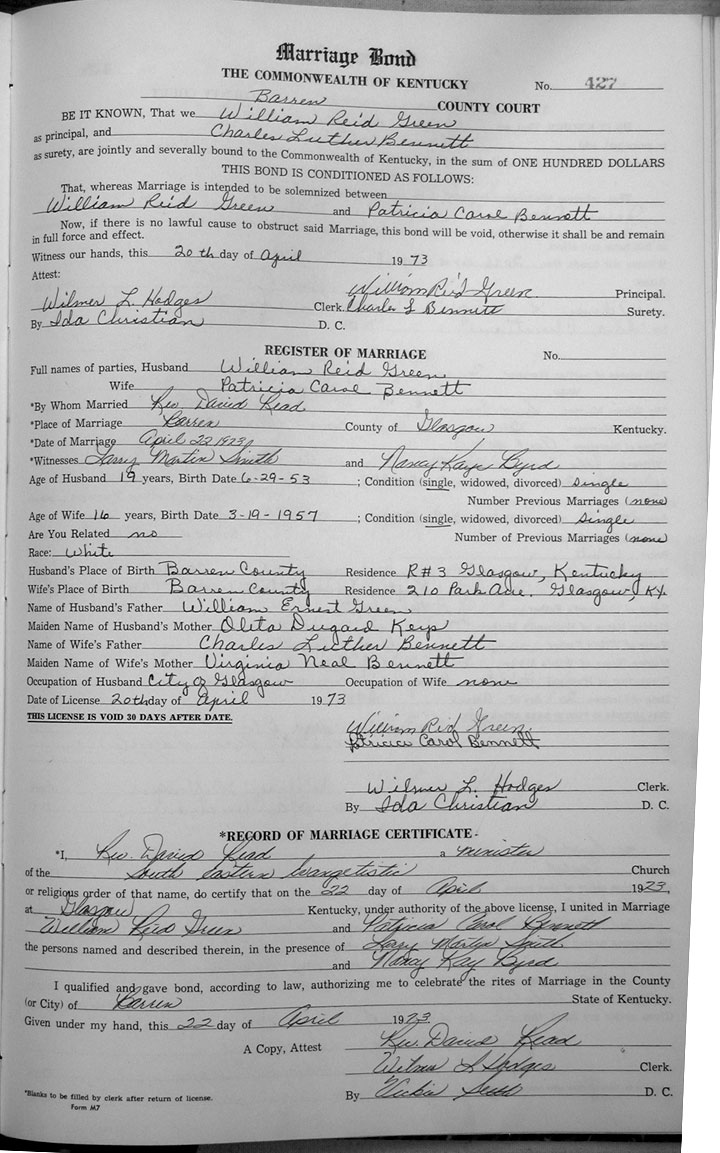 Marriage Bond
THE COMMONWEALTH OF KENTUCKY No. 427
Barren COUNTY COURT
BE IT KNOWN, That we William Reid Green
as principal, and Charles Luther Bennett
as surety, are jointly and severally bound to the Commonwealth of Kentucky, in the sum of ONE HUNDRED DOLLARS
THIS BOND IS CONDITIONED AS FOLLOWS:
That, whereas Marriage is intended to be solemnized between
William Reid Green and Patricia Carol Bennett
Now, if there is no lawful cause to obstruct said Marriage, this bond will be void, otherwise it shall be and remain
in full force and effect.
Witness our hands, this 20th day of April 1973
Attest:
William Reid Green Principal.
Wilmer L. Hodges Clerk. Charles L Bennett Surety.
By Ida Christian D. C.
REGISTER OF MARRIAGE No.
Full names of parties, Husband William Reid Green
Wife Patricia Carol Bennett
*By Whom Married Rev. David Read
*Place of Marriage Barren County of Glasgow Kentucky.
*Date of Marriage April 22, 1973
*Witnesses Larry Martin Smith and Nancy Kaye Byrd
Age of Husband 19 years, Birth Date 6-29-53 ; Condition (single, widowed, divorced) single
Number Previous Marriages (none)
Age of Wife 16 years, Birth Date 3-19-1957 ; Condition (single, widowed, divorced) single
Are You Related no Number of Previous Marriages (none)
Race: White
Husband's Place of Birth Barren County Residence R#3 Glasgow, Kentucky
Wife's Place of Birth Barren County Residence 210 Park Ave. Glasgow, Ky.
Name of Husband's Father William Ernest Green
Maiden Name of Husband's Mother Oleta Dugard Keys
Name of Wife's Father Charles Luther Bennett
Maiden Name of Wife's Mother Virginia Neal Bennett
Occupation of Husband City of Glasgow Occupation of Wife none
Date of License 20th day of April 1973
THIS LICENSE IS VOID 30 DAYS AFTER DATE.
William Reid Green
Patricia Carol Bennett
Wilmer L. Hodges Clerk.
By Ida Christian D. C.
*RECORD OF MARRIAGE CERTIFICATE-
*I, Rev. David Read a minister
of the South Eastern Evangelistic Church
or religious order of that name, do certify that on the 22 day of April 1973,
at Glasgow Kentucky, under authority of the above license, I united in Marriage
William Reid Green and Patricia Carol Bennett
the persons named and described therein, in the presence of Larry Martin Smith
and Nancy Kay Byrd
I qualified and gave bond, according to law, authorizing me to celebrate the rites of Marriage in the County
(or City) of Barren State of Kentucky.
Given under my hand, this 22 day of April 1973.
Rev. David Read
A Copy, Attest
Wilmer L Hodges Clerk.
*Blanks to be filled by clerk after return of license.
By Vickie D. C.
Form M7